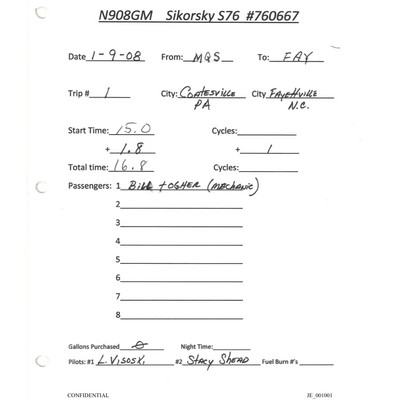 N908GM Sikorsky S76 #760667
Date 1-9-08 From: MQS To: FAY
Trip # 1 City: COATESVILLE City FAYETTVILLE
PA N.C.
Start Time: 15.0 Cycles:
+ 1.8 + 1
Total time: 16.8 Cycles:
Passengers: 1 BILL (MECHANIC)
2
3
4
5
6
7
8
Gallons Purchased 0 Night Time:
Pilots: #1 L. VISOSK. #2 STACY SHEAD Fuel Burn #'s
CONFIDENTIAL JE_001001